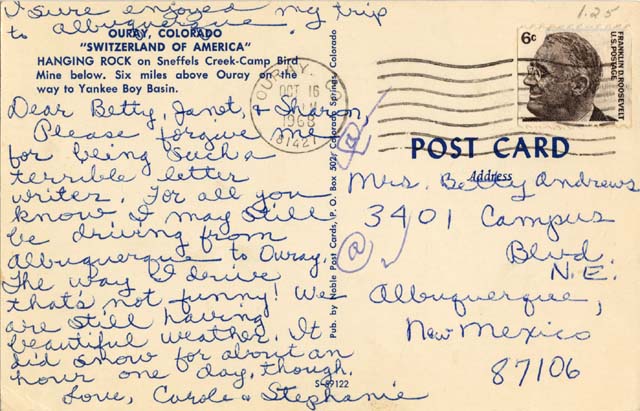 I sure enjoyed my trip
to Albuquerque.
OURAY, COLORADO
"SWITZERLAND OF AMERICA"
HANGING ROCK on Sneffels Creek-Camp Bird
Mine below. Six miles above Ouray on the
way to Yankee Boy Basin.
Dear Betty, Janet, & Sharon,
Please forgive me
for being such a
terrible letter
writer. For all you
know I may still
be driving from
Albuquerque to Ouray.
The way I derive
that's not funny! We
are still having
beautiful weather. It
did snow for about an
hour one day, though.
Love, Carole & Stephanie
S-89122
Pub. by Noble Post Cards, P. O. Box 502, Colorado Springs, Colorado
OURAY, CO
OCT 16
1968
81427
1.25
6c
FRANKLIN D. ROOSEVELT
U.S. POSTAGE
POST CARD
Address
Mrs. Betty Andrews
3401 Campus
Blvd.
N.E.
Albuquerque,
New Mexico
87106